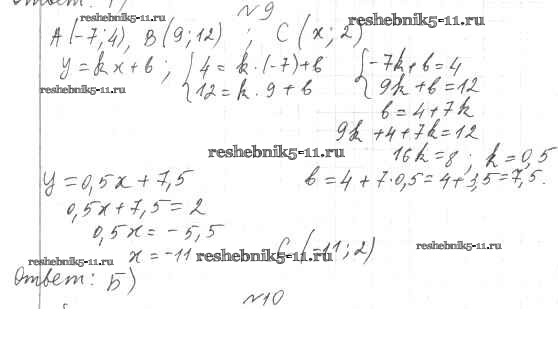 №9
reshebnik5-11.ru reshebnik5-11.ru
A(-7;4), B(9;12) ; C(x;2)
y=kx+b ; {4=k·(-7)+b {-7k+b=4
reshebnik5-11.ru {12=k·9+b {9k+b=12
b=4+7k
9k+4+7k=12
reshebnik5-11.ru 16k=8; k=0,5
y=0,5x+7,5 b=4+7·0,5=4+3,5=7,5.
0,5x+7,5=2
0,5x=-5,5
x=-11 reshebnik5-11.ru C(-11;2) reshebnik5-11.ru
reshebnik5-11.ru
Ответ: Б)
№10